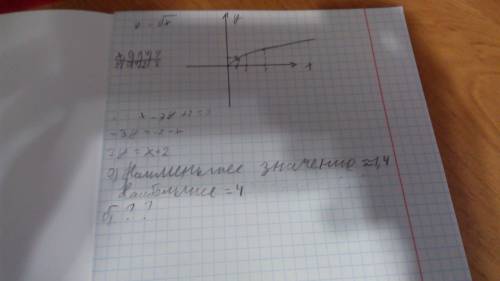 y = √x
y
x
x - 3y + 2 = 0
-3y = -2 - x
3y = x + 2
а) Наименьшее значение ≈ 1,4
Наибольшее = 4
б) ? ?